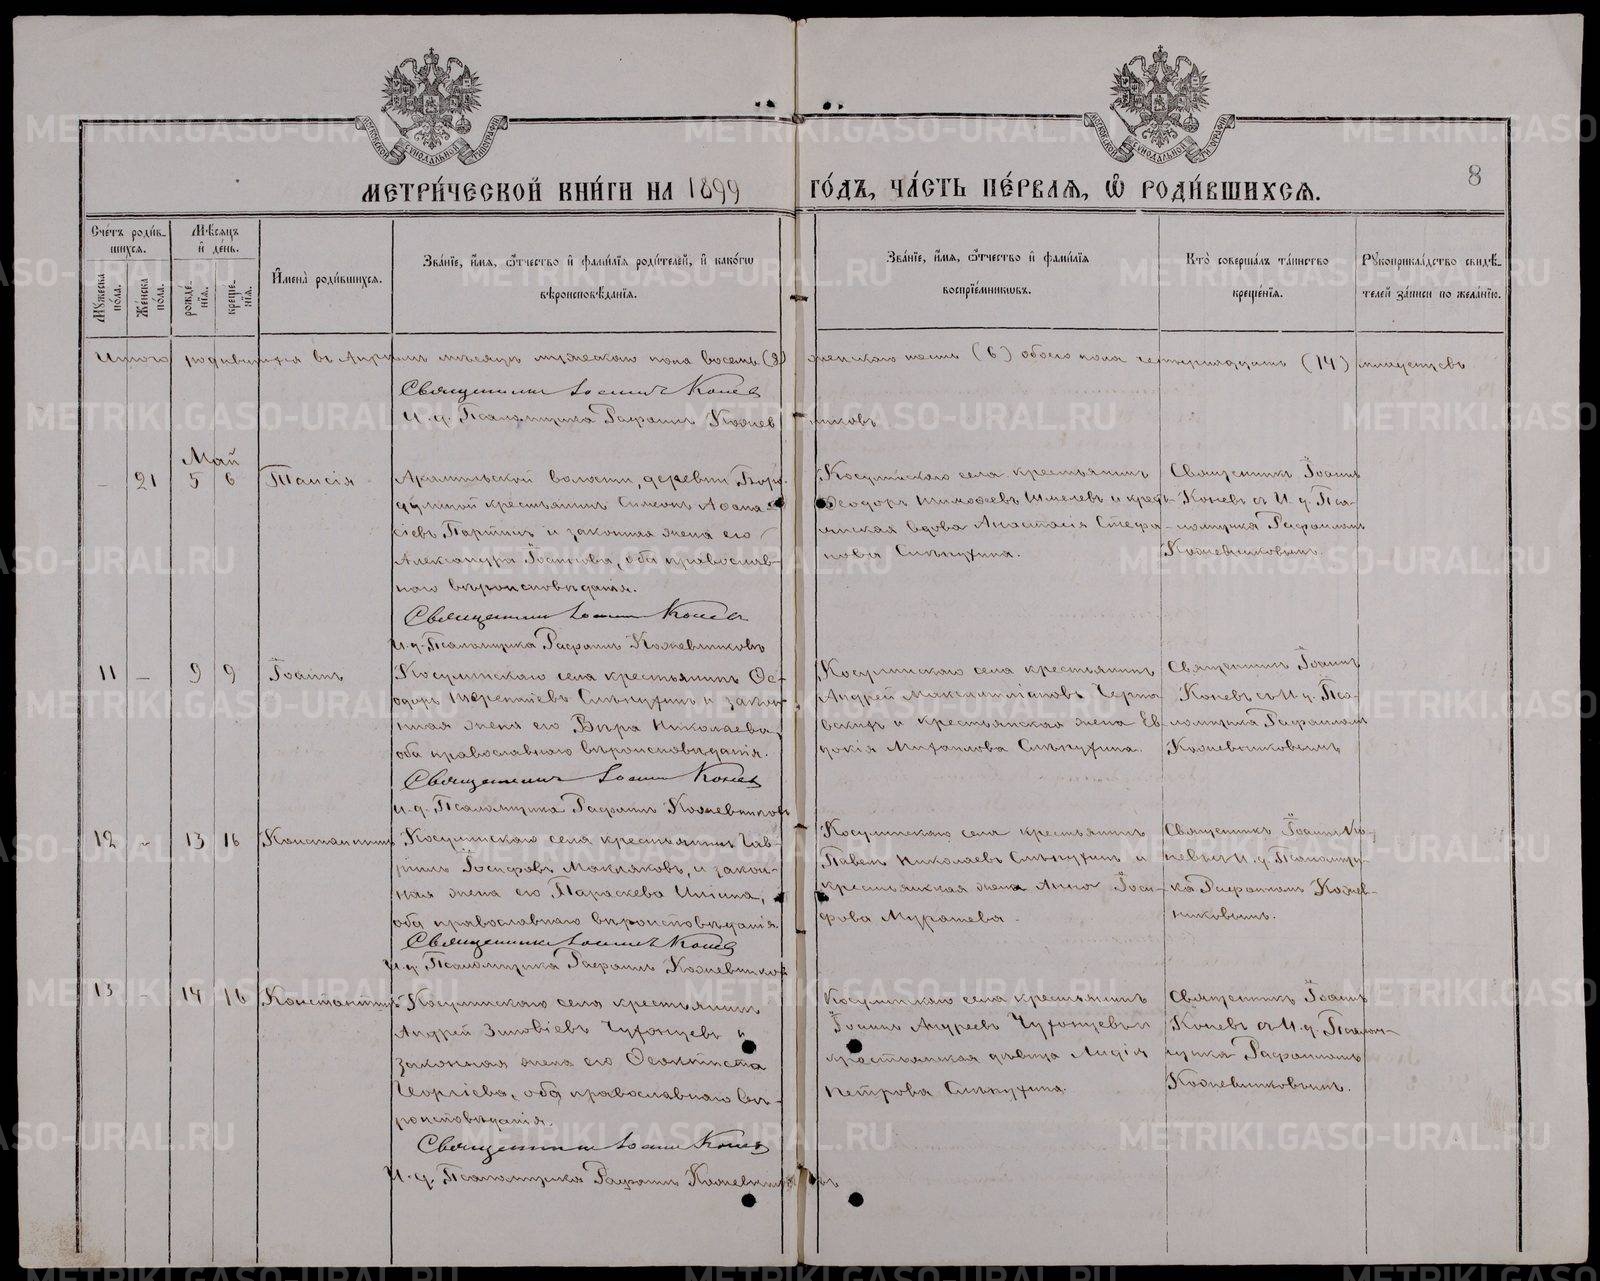 8
МЕТРИ́ЧЕСКОЙ КНИ́ГИ НА 1899 ГО́ДЪ, ЧА́СТЬ ПЕ́РВАЯ, Ѽ РОДИ́ВШИХСЯ.
Сче́тъ роди́в-
шихся.
Мѣ́сяцъ
и҆ де́нь.
Мꙋ́жеска по́ла.
Же́нска по́ла.
рожде́-нїѧ.
креще́-нїѧ.
И҆мена̀ роди́вшихсѧ.
Зва́нїе, и҆́мѧ, ѻ҆́тчество и҆ фами́лїѧ роди́телей, и҆ како́гѡ
вѣроисповѣ́данїѧ.
Зва́нїе, и҆́мѧ, ѻ҆́тчество и҆ фами́лїѧ
воспрїе́мникѡвъ.
Кто̀ соверша́лъ та́инство
креще́нїѧ.
Рꙋкоприкла́дство свидѣ́-
телей за́писи по жела́нїю.
Итого родившихся въ Апрѣлѣ мѣсяцѣ мужескаго пола восемь (8) женскаго шесть (6) обоего пола четырнадцать (14)
Священникъ Іоаннъ Коневъ
И. д. Псаломщика Рафаилъ Кожевниковъ
Май
21 5 6
Таисія
Арамильской волости, деревни
крестьянинъ Симеонъ Аѳана-
сіевъ и законная жена его
Александра Іоаннова, оба православ-
наго вѣроисповѣданія.
Косулинскаго села крестьянинъ
Ѳеодоръ Тимоѳеевъ Шмелевъ и кресть-
янская вдова Анастасія Стефа-
нова Слѣпухина.
Священникъ Іоаннъ
Коневъ съ И. д. Пса-
ломщика Рафаиломъ
Кожевниковымъ.
Священникъ Іоаннъ Коневъ
И. д. Псаломщика Рафаилъ Кожевниковъ
11 – 9 9
Іоаннъ
Косулинскаго села крестьянинъ Ѳе-
одоръ Терентіевъ Слѣпухинъ и закон-
ная жена его Вѣра Николаева,
оба православнаго вѣроисповѣданія.
Косулинскаго села крестьянинъ
Андрей Максимиліановъ Черно-
вскихъ и крестьянская жена Ев-
докія Михаилова Слѣпухина.
Священникъ Іоаннъ
Коневъ съ И. д. Пса-
ломщика Рафаиломъ
Кожевниковымъ
Священникъ Іоаннъ Коневъ
И. д. Псаломщика Рафаилъ Кожевниковъ
12 – 13 16
Константинъ
Косулинскаго села крестьянинъ Гав-
ріилъ Іосифовъ и закон-
ная жена его Параскева Ильина,
оба православнаго вѣроисповѣданія.
Косулинскаго села крестьянинъ
Павелъ Николаевъ Слѣпухинъ и
крестьянская жена Анна Іоси-
фова Мурашева.
Священникъ Іоаннъ Ко-
невъ съ И. д. Псаломщи-
ка Рафаиломъ Кожев-
никовымъ.
Священникъ Іоаннъ Коневъ
И. д. Псаломщика Рафаилъ Кожевниковъ
13 – 14 16
Константинъ
Косулинскаго села крестьянинъ
Андрей Зиновіевъ Чухонцевъ и
законная жена его Ѳеоктиста
Георгіева, оба православнаго вѣ-
роисповѣданія.
Косулинскаго села крестьянинъ
Іоаннъ Андреевъ Чухонцевъ и
крестьянская дѣвица Лидія
Петрова Слѣпухина.
Священникъ Іоаннъ
Коневъ съ И. д. Псалом-
щика Рафаиломъ
Кожевниковымъ.
Священникъ Іоаннъ Коневъ
И. д. Псаломщика Рафаилъ Кожевниковъ